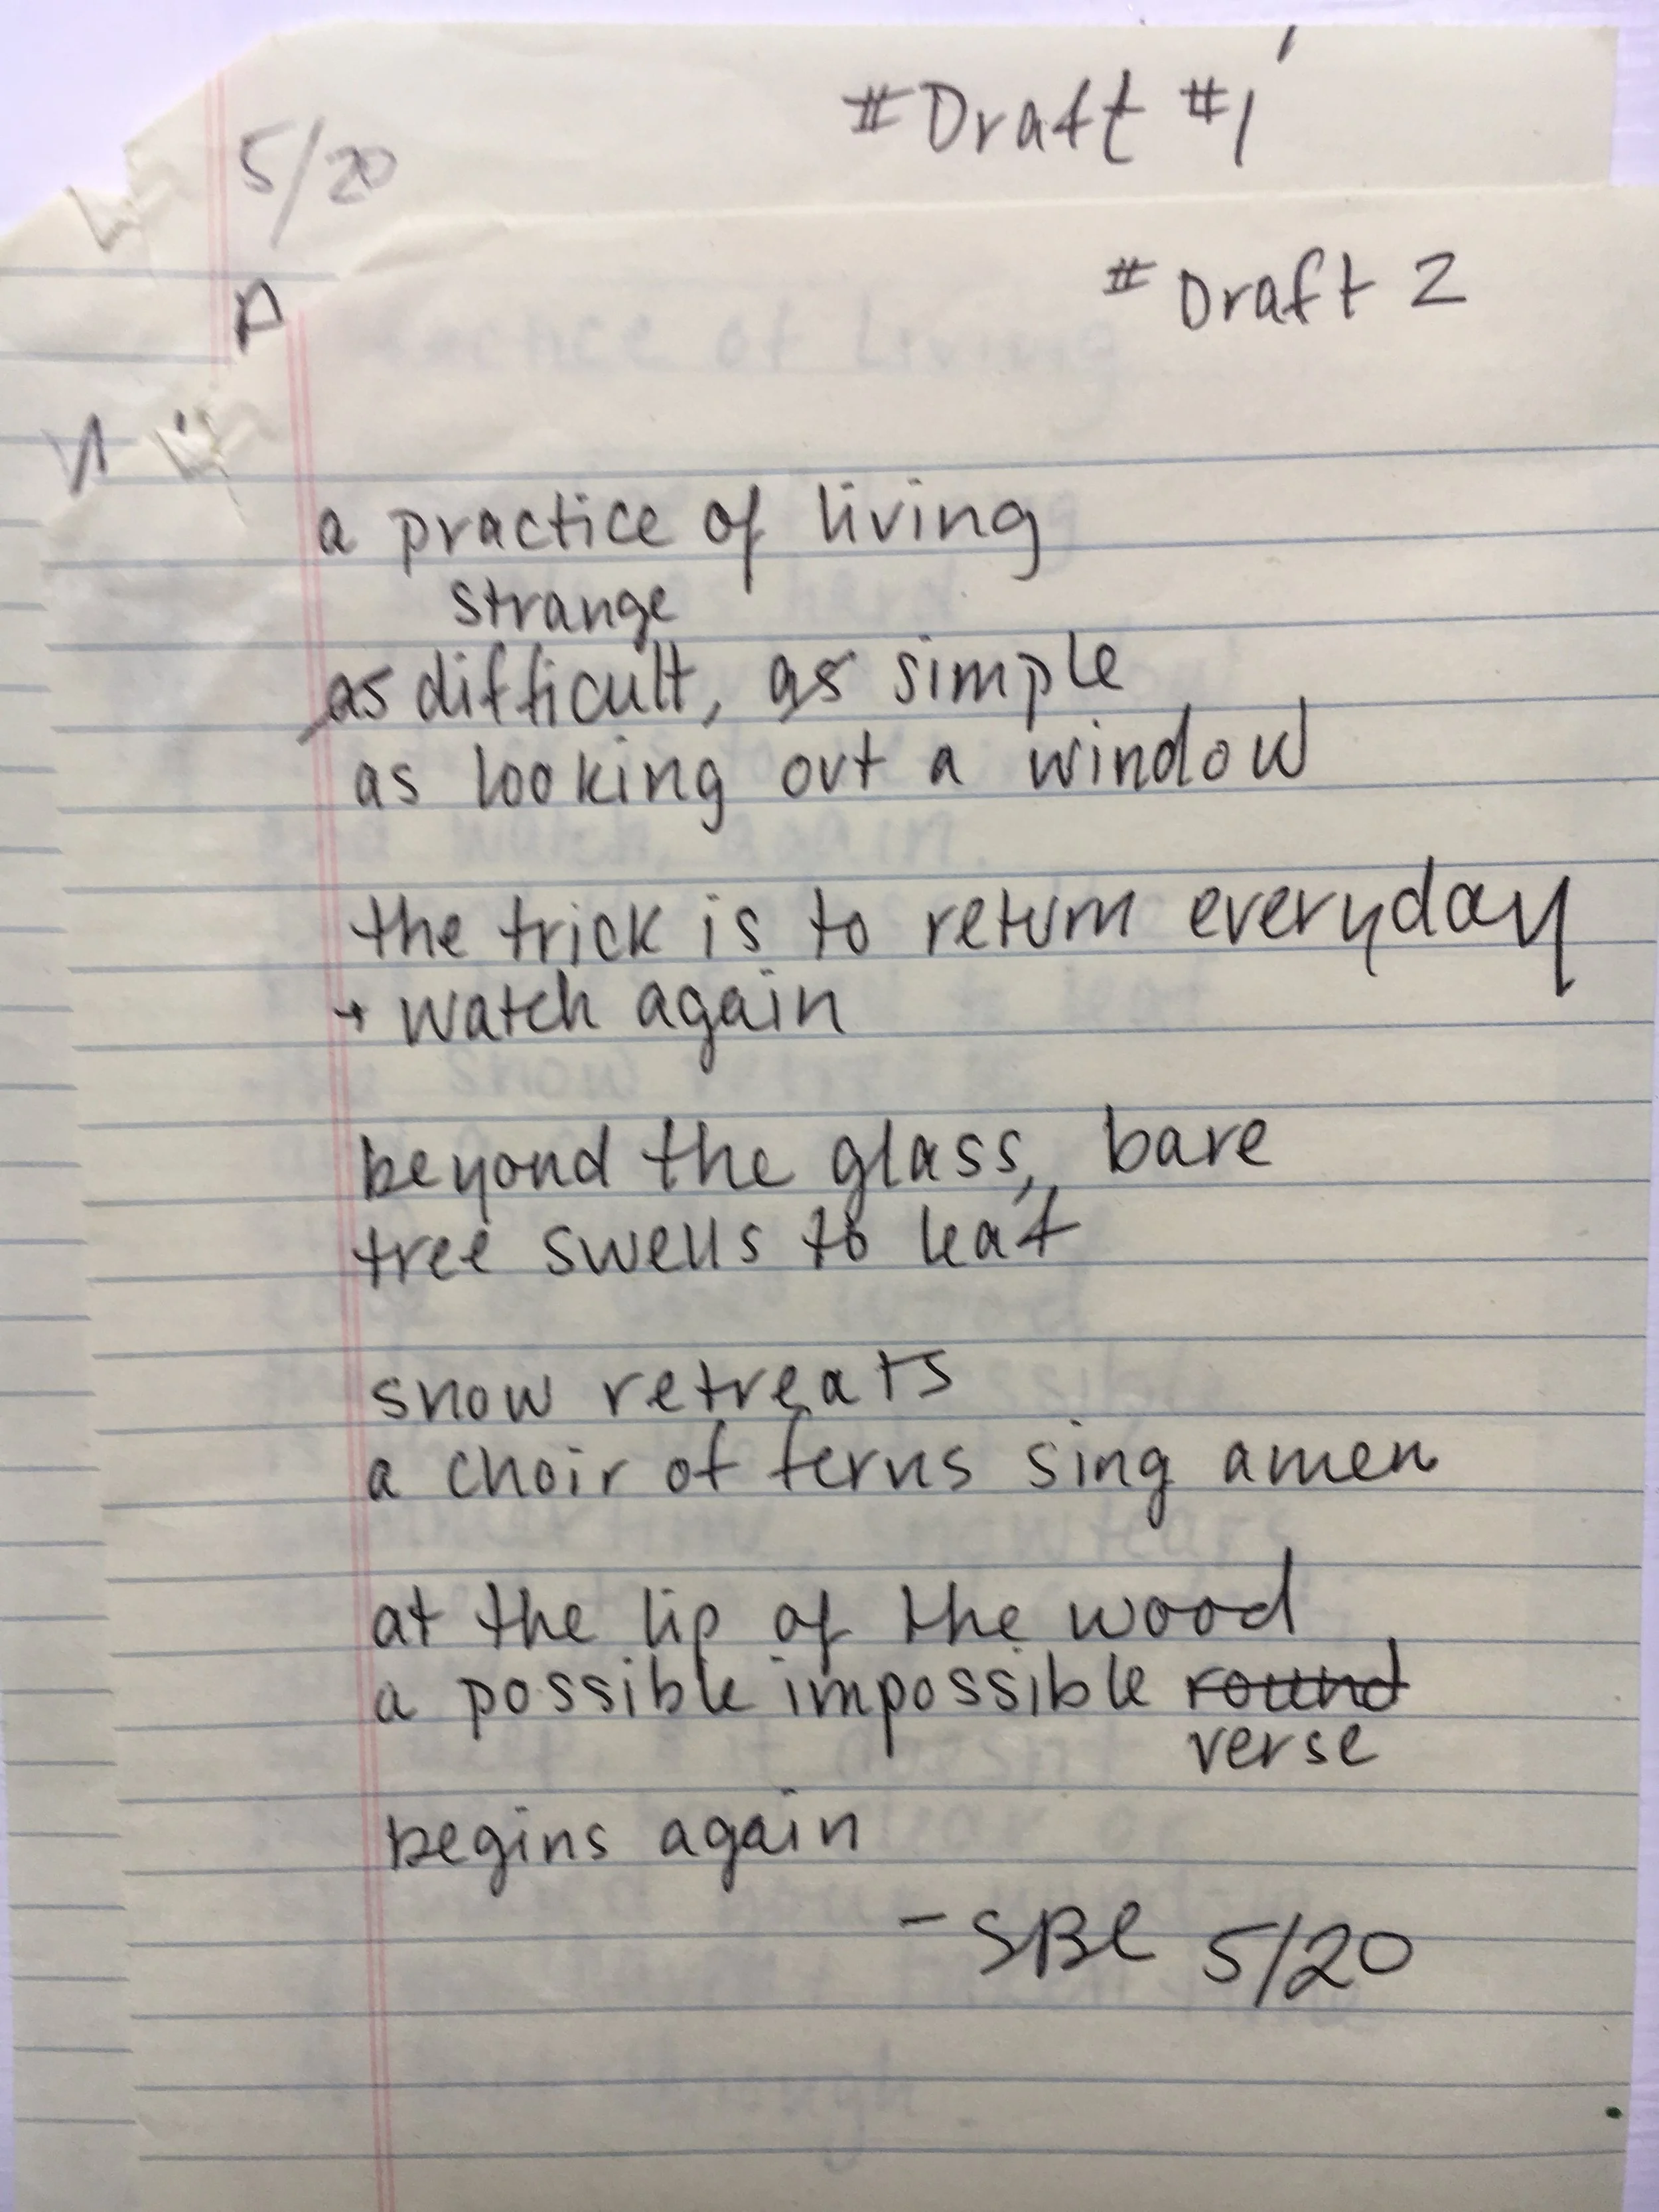 #Draft #1
5/20
# Draft 2
a practice of living
strange
as difficult, as simple
as looking out a window
the trick is to return everyday
+ watch again
beyond the glass, bare
tree swells to leaf
snow retreats
a choir of ferns sing amen
at the lip of the wood
a possible impossible round
verse
begins again
- SBL 5/20